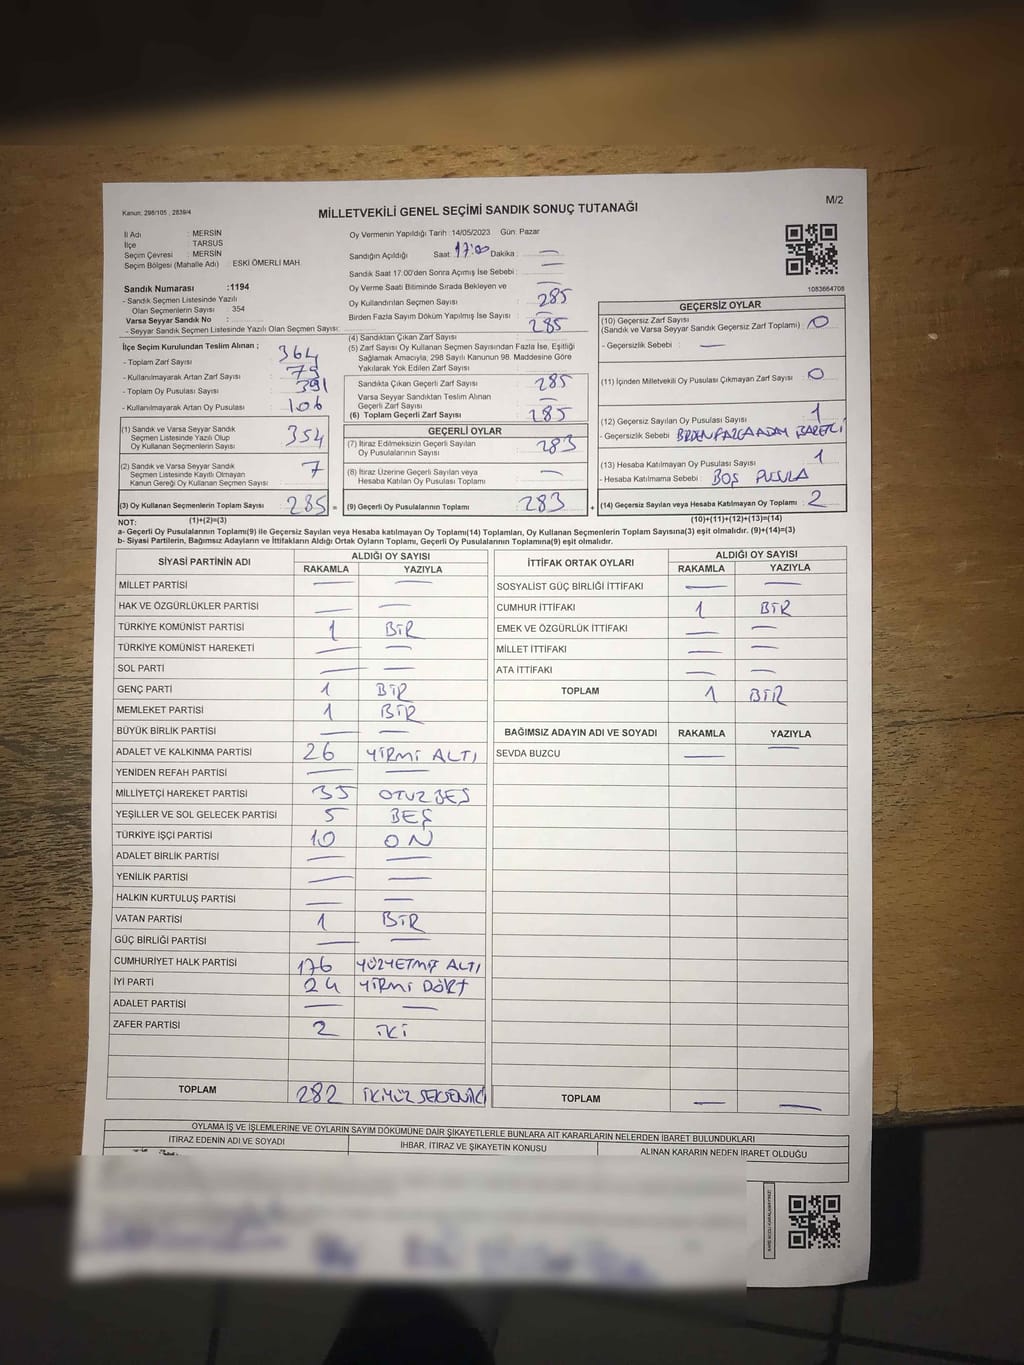 Kanun; 298/105 , 2839/4
MİLLETVEKİLİ GENEL SEÇİMİ SANDIK SONUÇ TUTANAĞI
M/2
İl Adı : MERSİN
İlçe : TARSUS
Seçim Çevresi : MERSİN
Seçim Bölgesi (Mahalle Adı) : ESKİ ÖMERLİ MAH.
Oy Vermenin Yapıldığı Tarih : 14/05/2023 Gün: Pazar
Sandığın Açıldığı Saat: 17:00 Dakika : —
Sandık Saat 17:00'den Sonra Açımış İse Sebebi : —
Oy Verme Saati Bitiminde Sırada Bekleyen ve : —
Oy Kullandırılan Seçmen Sayısı : 285
Birden Fazla Sayım Döküm Yapılmış İse Sayısı : —
Sandık Numarası :1194
- Sandık Seçmen Listesinde Yazılı
Olan Seçmenlerin Sayısı : 354
Varsa Seyyar Sandık No :
- Seyyar Sandık Seçmen Listesinde Yazılı Olan Seçmen Sayısı:
1083664708
İlçe Seçim Kurulundan Teslim Alınan ;
- Toplam Zarf Sayısı : 364
- Kullanılmayarak Artan Zarf Sayısı : 79
- Toplam Oy Pusulası Sayısı : 391
- Kullanılmayarak Artan Oy Pusulası : 106
(1) Sandık ve Varsa Seyyar Sandık
Seçmen Listesinde Yazılı Olup
Oy Kullanan Seçmenlerin Sayısı 354
(2) Sandık ve Varsa Seyyar Sandık
Seçmen Listesinde Kayıtlı Olmayan
Kanun Gereği Oy Kullanan Seçmen Sayısı : 7
(3) Oy Kullanan Seçmenlerin Toplam Sayısı 285 =
(4) Sandıktan Çıkan Zarf Sayısı : 285
(5) Zarf Sayısı Oy Kullanan Seçmen Sayısından Fazla İse, Eşitliği
Sağlamak Amacıyla, 298 Sayılı Kanunun 98. Maddesine Göre
Yakılarak Yok Edilen Zarf Sayısı :
Sandıkta Çıkan Geçerli Zarf Sayısı : 285
Varsa Seyyar Sandıktan Teslim Alınan
Geçerli Zarf Sayısı : —
(6) Toplam Geçerli Zarf Sayısı : 285
GEÇERLİ OYLAR
(7) İtiraz Edilmeksizin Geçerli Sayılan
Oy Pusulalarının Sayısı : 283
(8) İtiraz Üzerine Geçerli Sayılan veya
Hesaba Katılan Oy Pusulası Toplamı : —
(9) Geçerli Oy Pusulalarının Toplamı : 283 +
GEÇERSİZ OYLAR
(10) Geçersiz Zarf Sayısı
(Sandık ve Varsa Seyyar Sandık Geçersiz Zarf Toplamı) : 0
- Geçersizlik Sebebi : —
(11) İçinden Milletvekili Oy Pusulası Çıkmayan Zarf Sayısı : 0
(12) Geçersiz Sayılan Oy Pusulası Sayısı : 1
- Geçersizlik Sebebi : BİRDEN FAZLA ADAY İŞARETLİ
(13) Hesaba Katılmayan Oy Pusulası Sayısı : 1
- Hesaba Katılmama Sebebi : BOŞ PUSULA
(14) Geçersiz Sayılan veya Hesaba Katılmayan Oy Toplamı : 2
NOT: (1)+(2)=(3) (10)+(11)+(12)+(13)=(14)
a- Geçerli Oy Pusulalarının Toplamı(9) ile Geçersiz Sayılan veya Hesaba katılmayan Oy Toplamı(14) Toplamları, Oy Kullanan Seçmenlerin Toplam Sayısına(3) eşit olmalıdır. (9)+(14)=(3)
b- Siyasi Partilerin, Bağımsız Adayların ve İttifakların Aldığı Ortak Oyların Toplamı, Geçerli Oy Pusulalarının Toplamına(9) eşit olmalıdır.
SİYASİ PARTİNİN ADI ALDIĞI OY SAYISI
RAKAMLA YAZIYLA
MİLLET PARTİSİ — —
HAK VE ÖZGÜRLÜKLER PARTİSİ — —
TÜRKİYE KOMÜNİST PARTİSİ 1 BİR
TÜRKİYE KOMÜNİST HAREKETİ — —
SOL PARTİ — —
GENÇ PARTİ 1 BİR
MEMLEKET PARTİSİ 1 BİR
BÜYÜK BİRLİK PARTİSİ — —
ADALET VE KALKINMA PARTİSİ 26 YİRMİ ALTI
YENİDEN REFAH PARTİSİ — —
MİLLİYETÇİ HAREKET PARTİSİ 35 OTUZ BEŞ
YEŞİLLER VE SOL GELECEK PARTİSİ 5 BEŞ
TÜRKİYE İŞÇİ PARTİSİ 10 ON
ADALET BİRLİK PARTİSİ — —
YENİLİK PARTİSİ — —
HALKIN KURTULUŞ PARTİSİ — —
VATAN PARTİSİ 1 BİR
GÜÇ BİRLİĞİ PARTİSİ — —
CUMHURİYET HALK PARTİSİ 176 YÜZYETMİŞ ALTI
İYİ PARTİ 24 YİRMİ DÖRT
ADALET PARTİSİ — —
ZAFER PARTİSİ 2 İKİ
TOPLAM 282 İKİYÜZ SEKSENİKİ
İTTİFAK ORTAK OYLARI ALDIĞI OY SAYISI
RAKAMLA YAZIYLA
SOSYALİST GÜÇ BİRLİĞİ İTTİFAKI — —
CUMHUR İTTİFAKI 1 BİR
EMEK VE ÖZGÜRLÜK İTTİFAKI — —
MİLLET İTTİFAKI — —
ATA İTTİFAKI — —
TOPLAM 1 BİR
BAĞIMSIZ ADAYIN ADI VE SOYADI RAKAMLA YAZIYLA
SEVDA BUZCU — —
TOPLAM — —
OYLAMA İŞ VE İŞLEMLERİNE VE OYLARIN SAYIM DÖKÜMÜNE DAİR ŞİKAYETLERLE BUNLARA AİT KARARLARIN NELERDEN İBARET BULUNDUKLARI
İTİRAZ EDENİN ADI VE SOYADI İHBAR, İTİRAZ VE ŞİKAYETİN KONUSU ALINAN KARARIN NEDEN İBARET OLDUĞU